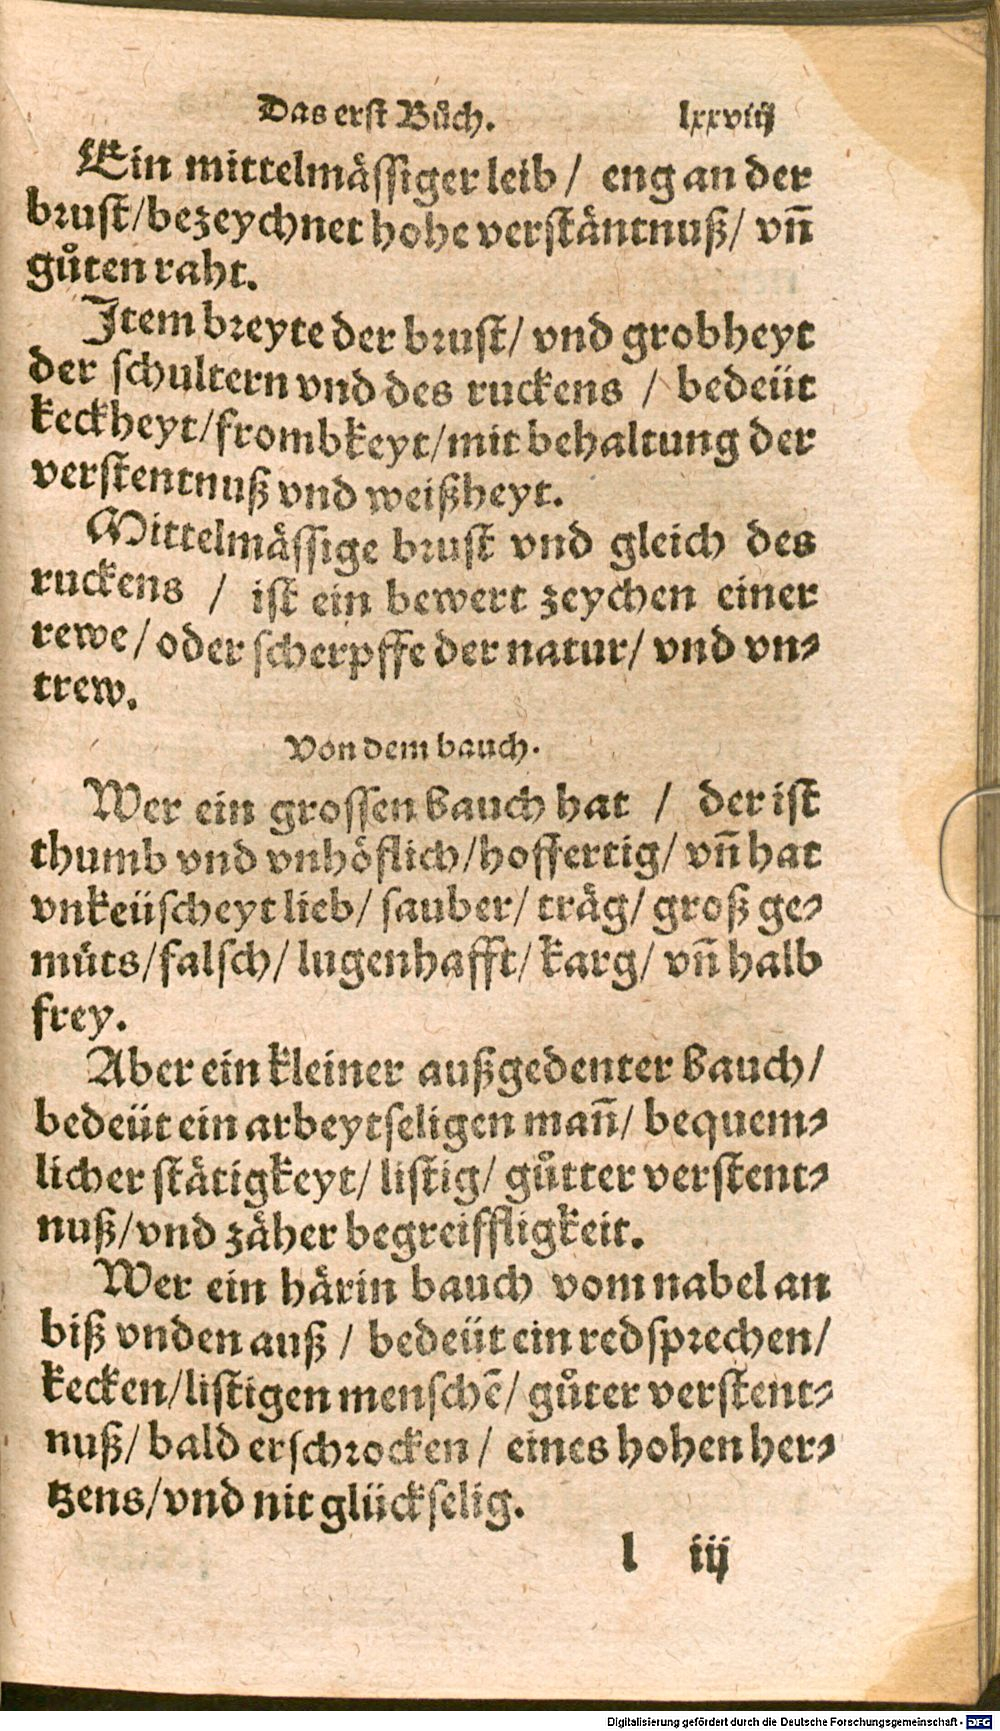 Das erst Bůch. lxxviij
Ein mittelmässiger leib / eng an der
brust/bezeychnet hohe verstäntnuß/ vn̄
gůten raht.
Item breyte der brust/ vnd grobheyt
der schultern vnd des ruckens / bedeüt
keckheyt/frombkeyt/mit behaltung der
verstentnuß vnd weißheyt.
Mittelmässige brust vnd gleich des
ruckens / ist ein bewert zeychen einer
rewe/ oder scherpffe der natur/ vnd vn⸗
trew.
Von dem bauch.
Wer ein grossen bauch hat / der ist
thumb vnd vnhöflich/hoffertig/ vn̄ hat
vnkeüscheyt lieb/ sauber/ träg/ groß ge⸗
müts/falsch/ lugenhafft/ karg/ vn̄ halb
frey.
Aber ein kleiner außgedenter bauch/
bedeüt ein arbeytseligen man̄/ bequem⸗
licher stätigkeyt/ listig/ gůtter verstent⸗
nuß/vnd zäher begreiffligkeit.
Wer ein härin bauch vom nabel an
biß vnden auß / bedeüt ein redsprechen/
kecken/listigen menschē/ gůter verstent⸗
nuß/ bald erschrocken / eines hohen her⸗
tzens/vnd nit glückselig.
l iij
Digitalisierung gefördert durch die Deutsche Forschungsgemeinschaft - DFG